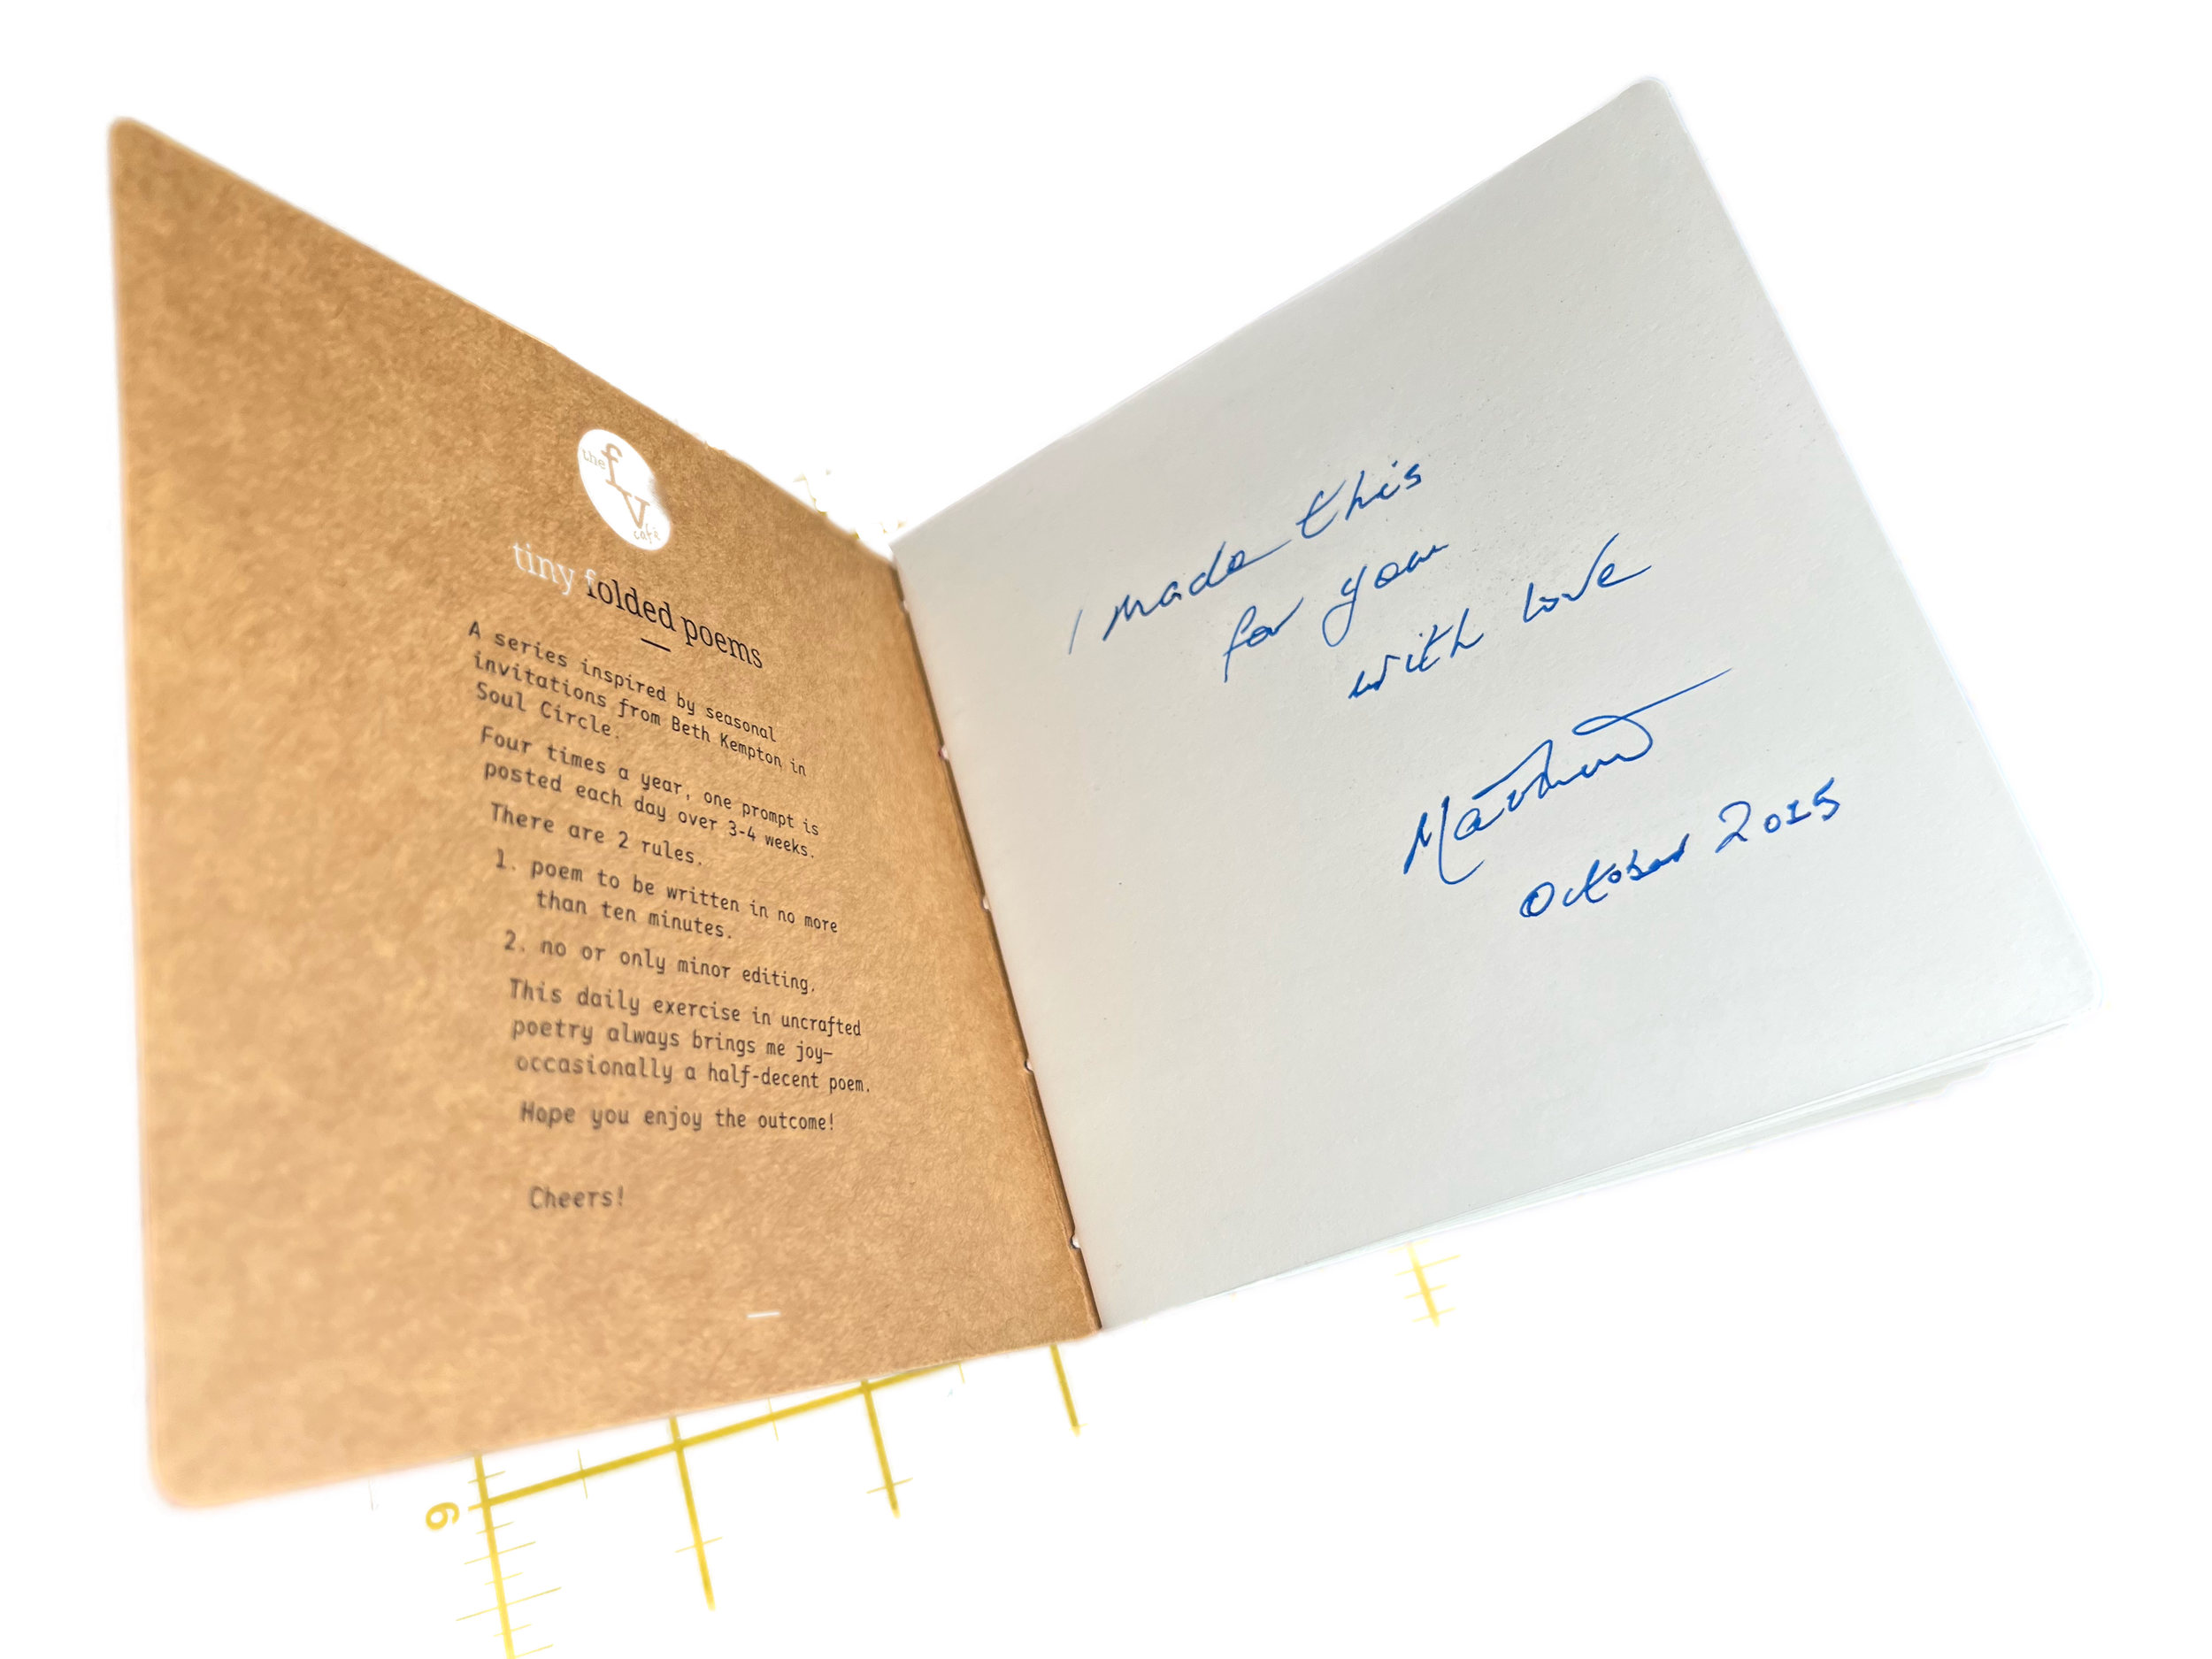 the
fv
café
tiny folded poems
A series inspired by seasonal
invitations from Beth Kempton in
Soul Circle.
Four times a year, one prompt is
posted each day over 3-4 weeks.
There are 2 rules.
1. poem to be written in no more
than ten minutes.
2. no or only minor editing.
This daily exercise in uncrafted
poetry always brings me joy—
occasionally a half-decent poem.
Hope you enjoy the outcome!
Cheers!
I made this
for you
with love
October 2015
6